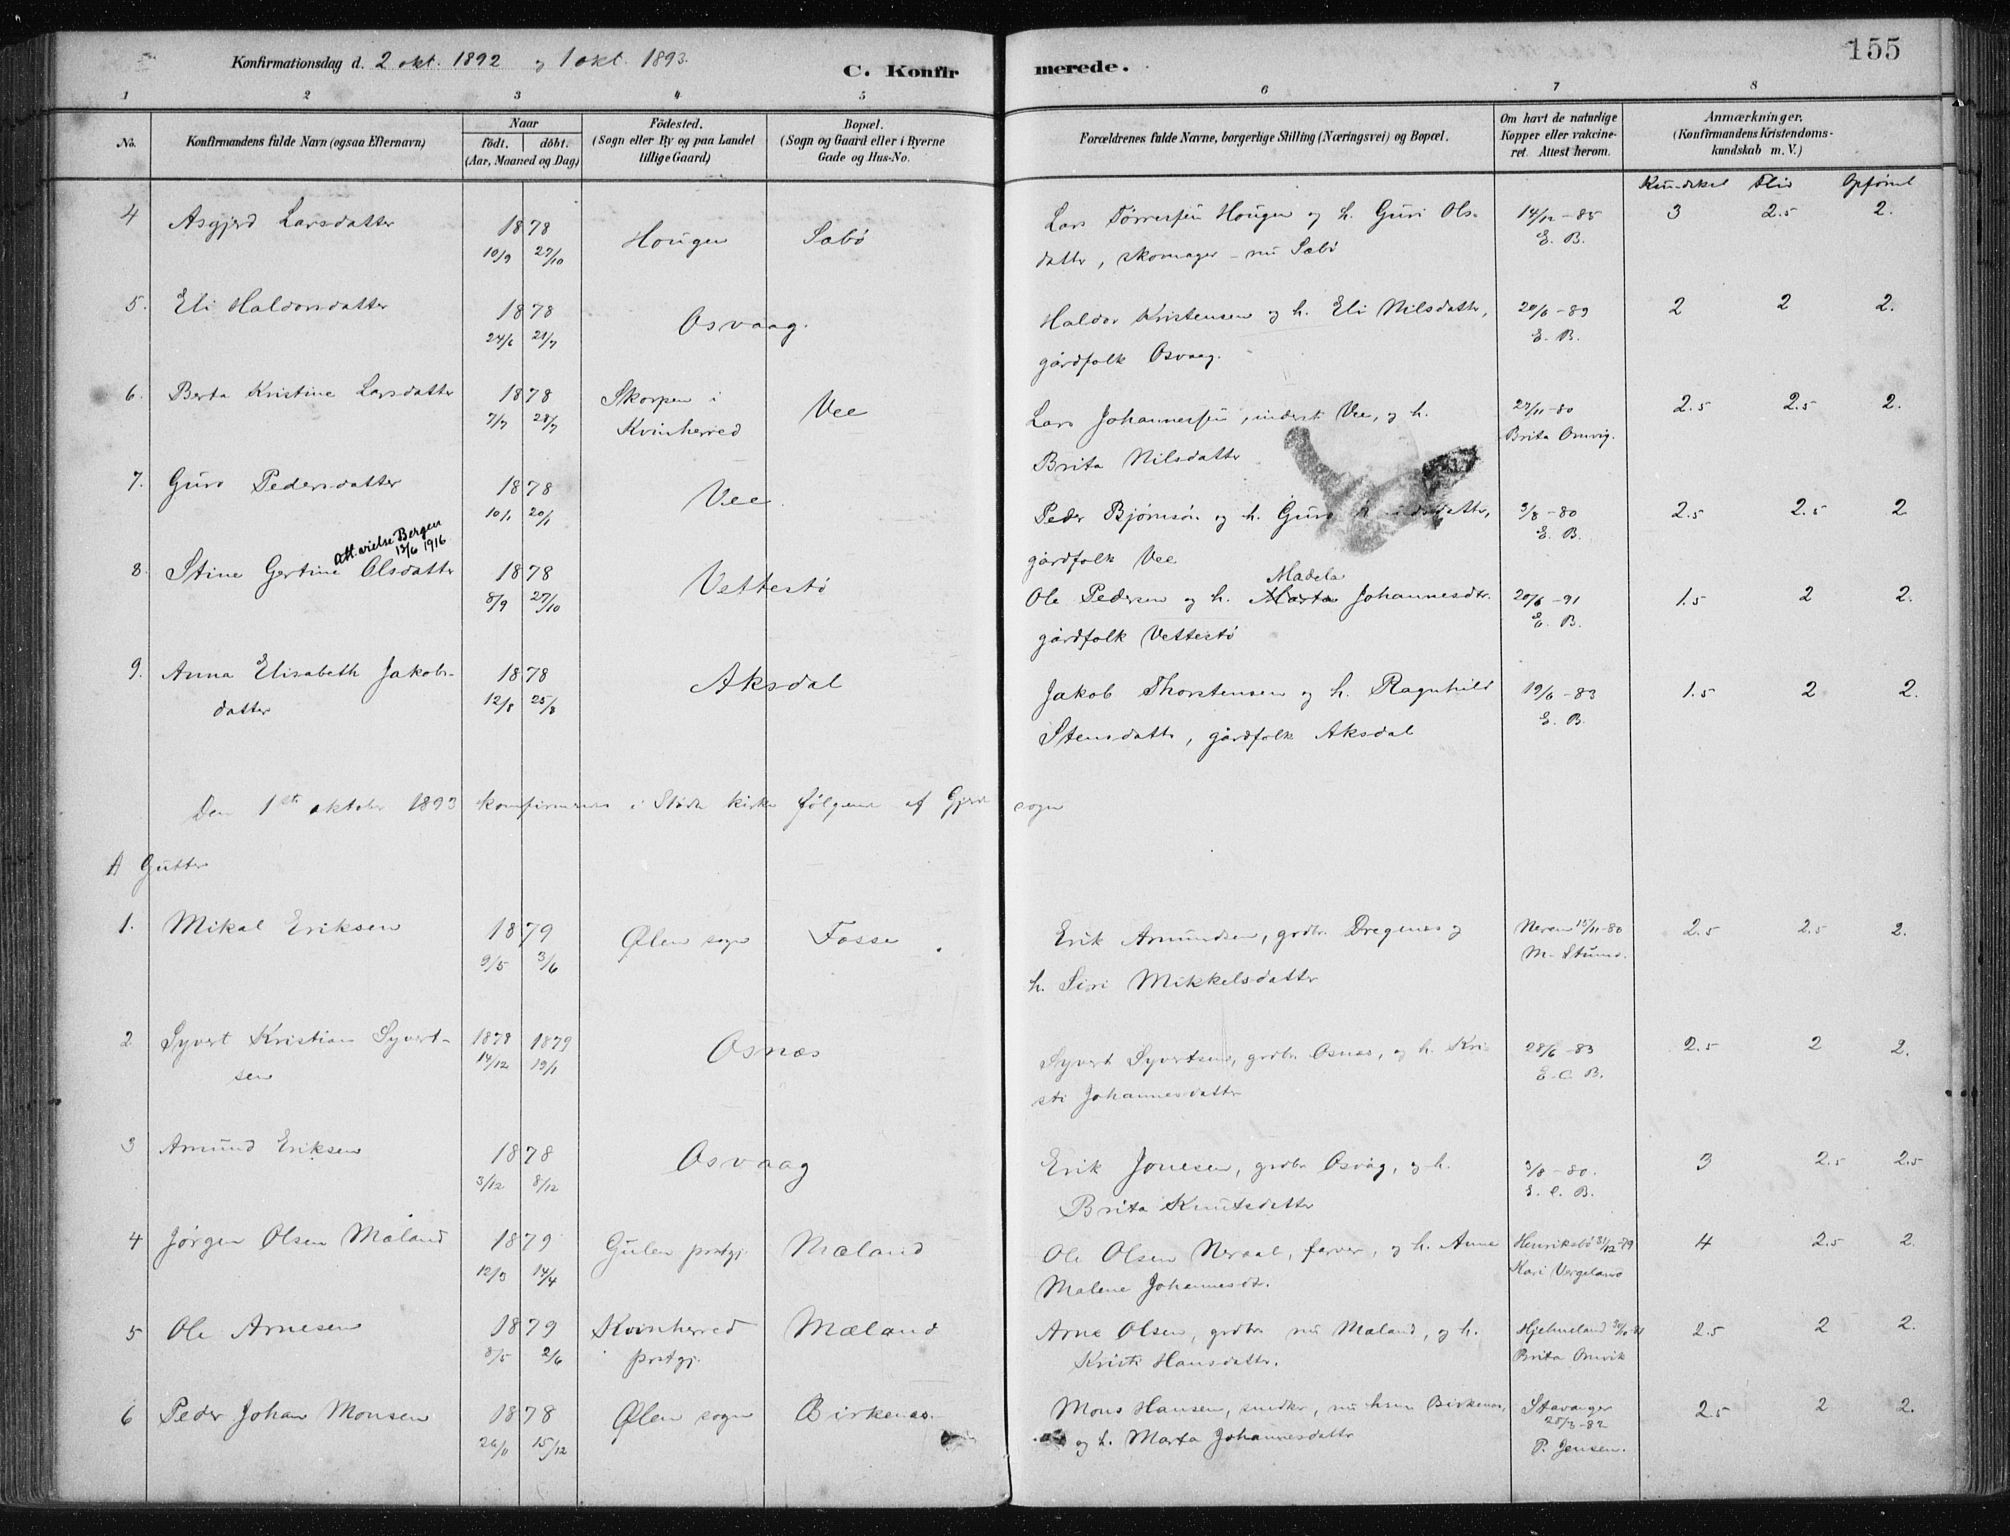 155
Konfirmationsdag d. 2 okt. 1892 og 1 okt. 1893.
C. Konfirmerede.
1 2 3 4 5 6 7 8
No.
Konfirmandens fulde Navn (ogsaa Efternavn)
Naar
födt. döbt.
(Aar, Maaned og Dag)
Födested.
(Sogn eller By og paa Landet
tillige Gaard)
Bopæl.
(Sogn og Gaard eller i Byerne
Gade og Hus-No.
Forældrenes fulde Navne, borgerlige Stilling (Næringsvei) og Bopæl.
Om havt de naturlige
Kopper eller vakcine-
ret. Attest herom.
Anmærkninger.
(Konfirmandens Kristendoms-
kundskab m. V.)
Kundskab Flid Opførsel
4 Asgjerd Larsdatter 1878 Hougen Sæbö Lars Tørresen Hougen og h. Guri Ols- 14/12 -85 3 2.5 2.
10/9 27/10 datter, skomager - nu Sæbö E. B.
5. Eli Haldorsdatter 1878 Osvaag. Haldor Kristensen og h. Eli Nilsdatter, 20/6 -89 2 2 2.
24/6 21/7 gårdfolk Osvaag. E. B.
6. Berta Kristine Larsdatter 1878 Skorpen i Vee Lars Johannesen, inderst Vee, og h. 27/11 -80 2.5 2.5 2.
7/7 28/7 Kvinherred Brita Nilsdatter Brita Omvig.
7. Guro Pedersdatter 1878 Vee. Peder Bjørnsön og h. Guro 3/8 -80 2.5 2.5 2
10/1 20/1 gårdfolk Vee E. B.
Att. vielse Bergen
13/6 1916
8. Stine Gertine Olsdatter 1878 Vettestö Ole Pedersen og h. Marta Madela Johannesdtr. 20/6 -91 1.5 2 2.
8/9 27/10 gårdfolk Vettestö E. B.
9. Anna Elisabeth Jakobs- 1878 Aksdal Jakob Thorstensen og h. Ragnhild 19/6 -83 1.5 2 2.
datter 12/8 25/8 Stensdatter, gårdfolk Aksdal E. B.
Den 1ste oktober 1893 konfirmeres i kirke følgende af sogn
A Gutter
1. Mikal Eriksen 1879 Ølen sogn Fosse. Erik Amundsen, grdbr. Dregenes og Neren 15/11 -80 2.5 2.5 2.
9/5 3/6 h. Siri Mikkelsdatter M.
2 Syvert Kristian Syvert- 1878 1879 Osnæs Syvert Syvertsen, grdbr. Osnæs, og h. Kri 28/6 -83 2.5 2 2.
sen 14/12 19/1 sti Johannesdatter E. C. B.
3 Amund Eriksen 1878 Osvaag Erik Jonesen, grdbr. Osvåg, og h. 3/8 -80. 3 2.5 2.5
3/12 8/12 Brita Knutsdatter E. C. B.
4 Jørgen Olsen Mæland 1879 Gulen prstgj. Mæland Ole Olsen Neraal, farver, og h. Anna Henriksbö 31/12 -79 4 2.5 2.
12/3 14/4 Malene Johannesdt. Kari Vergeland
5 Ole Arnesen 1879 Kvinherred Mæland Arne Olsen, grdbr. nu Mæland, og h. Hjelmeland 2.5 2 2.
8/5 2/6 prstgj. Kristi Hansdatter. Brita Omvik
6 Peder Johan Monsen 1878 Ølen sogn Birkenæs. Mons Hansen, snedker, nu hsm Birkenæs, Stavanger 2.5 2 2.
26/11 15/12 og h. Marta Johannesdatter 28/3 -82
P. Jensen.